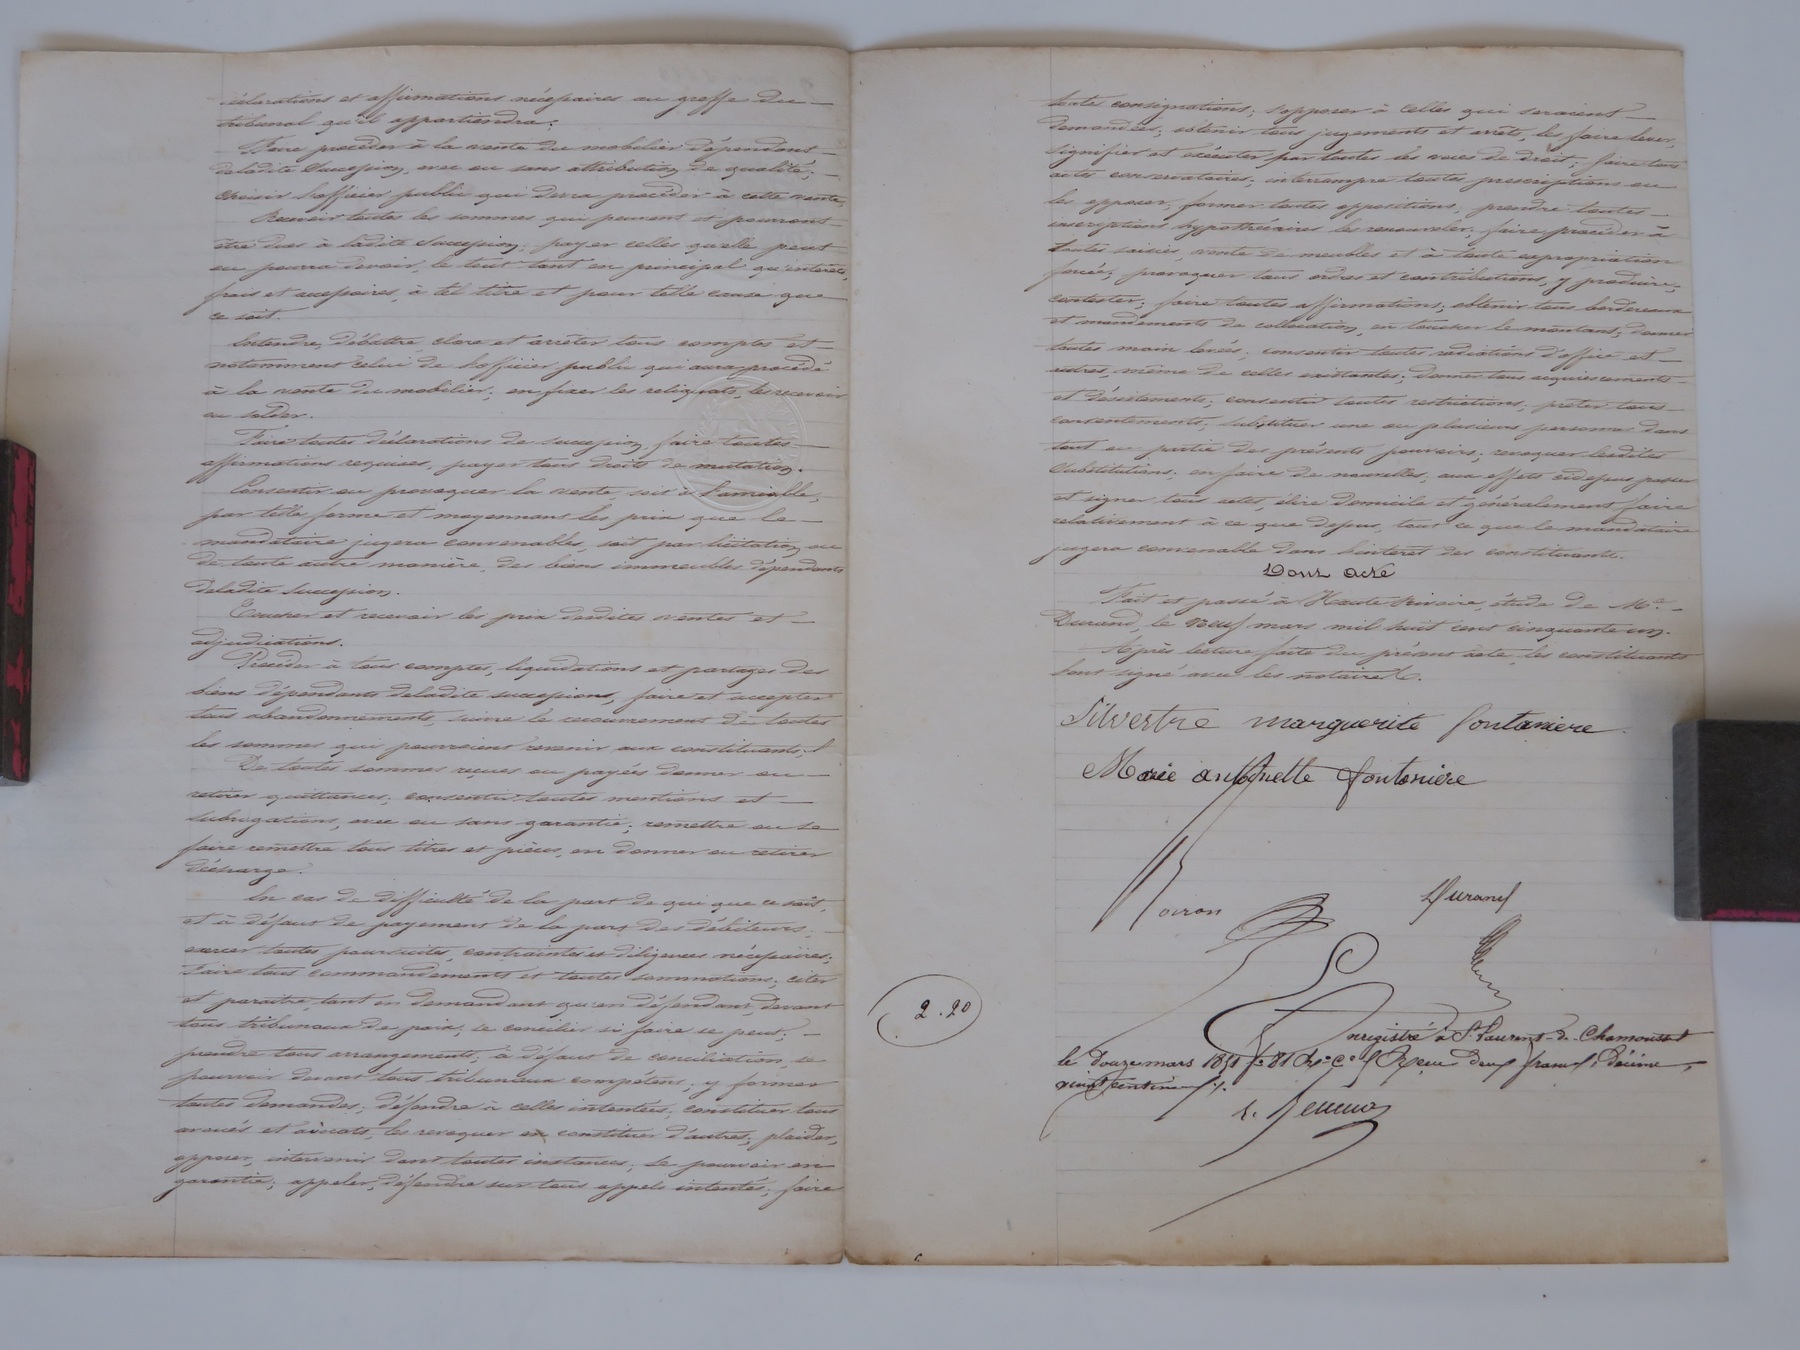 déclarations et affirmations nécessaires au greffe du
tribunal qu'il appartiendra;
Faire procéder à la vente du mobilier dépendant
deladite succession, avec ou sans attribution de qualité;
choisir l'officier public qui devra procéder à cette vente,
Recevoir toutes les sommes qui peuvent et pourront
être dues à ladite succession; payer celles qu'elle peut
ou pourra devoir, le tout tant en principal qu'intérêts,
frais et accessoires, à tel titre et pour telle cause que
ce soit.
Entendre, débattre clore et arrêter tous comptes et
notamment celui de l'officier public qui aura procédé
à la vente du mobilier; en fixer les reliquats, les recevoir
ou solder.
Faire toutes déclarations de succession, faire toutes
affirmations requises, payer tous droits de mutation.
Consentir ou provoquer la vente, soit à l'amiable,
par telle forme et moyennant les prix que le
mandataire jugera convenables, soit par licitation ou
de toute autre manière, des biens immeubles dépendants
deladite succession.
Toucher et recevoir les prix desdites ventes et
adjudications.
Procéder à tous comptes, liquidations et partages des
biens dépendants deladite succession, faire et accepter
tous abandonnements, suivre le recouvrement de toutes
les sommes qui pourraient revenir aux constituants.
De toutes sommes reçues ou payées donner ou
retirer quittances; consentir toutes mentions et
subrogations, avec ou sans garantie; remettre ou se
faire remettre tous titres et pièces, en donner ou retirer
décharge.
En cas de difficulté de la part de qui que ce soit,
et à défaut de payement de la part des débiteurs,
exercer toutes poursuites, contraintes et diligences nécessaires;
Faire tous commandements et toutes sommations; citer
et paraître, tant en demandant qu'en défendant, devant
tous tribunaux de paix, se concilier si faire se peut;
prendre tous arrangements; à défaut de conciliation, se
pourvoir devant tous tribunaux compétens; y former
toutes demandes; défendre à celles intentées, constituer tous
avoués et avocats, les revoquer en constituer d'autres; plaider,
opposer, intervenir dans toutes instances; se pourvoir en
garantie; appeler, défendre sur tous appels intentés; faire
toutes consignations; s'opposer à celles qui seraient
demandées; obtenir tous jugements et arrêts, les faire lever,
signifier et exécuter par toutes les voies de droit; faire tous
actes conservatoires; interrompre toutes prescriptions ou
les opposer, former toutes oppositions; prendre toutes
inscriptions hypothécaires les renouveler; faire procéder à
toutes saisies, vente de meubles et à toute expropriation
forcée; provoquer tous ordres et contributions, y produire,
contester; faire toutes affirmations; obtenir tous bordereaux
et mandements de collocation, en toucher le montant; donner
toutes main levées; consentir toutes radiations d'office et
autres, même de celles existantes; donner tous acquiescements
et désistements; consentir toutes restrictions; prêter tous
consentements; substituer une ou plusieurs personnes dans
tout ou partie des présents pouvoirs; revoquer lesdites
substitutions; en faire de nouvelles, aux effets cidessus passer
et signer tous actes, élire domicile et généralement faire
relativement à ce que dessus, tout ce que le mandataire
jugera convenable dans l'intérêt des constituants.
Dont acte
Fait et passé à Haute Rivoire, étude de Me
Durand, le neuf mars mil huit cent cinquante un.
Après lecture faite du présent acte, les constituants
sont signé avec les notaires.
Silvestre marguerite fontaniere
Marie antoinette fontaniere
Voiron
Durand
2.20
Enregistré à St Laurent-de-Chamousset
le douze mars 1851 fo 81 Ro Ce Reçu deux francs, décime,
vingt centimes.